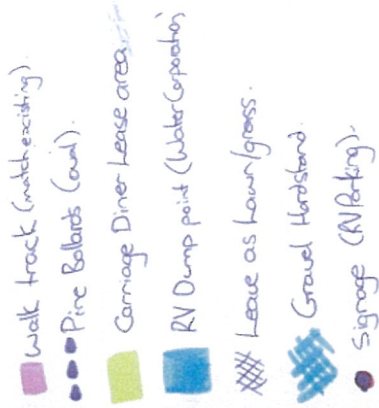 Walk track (match existing).
Pine Bollards (oval).
Carriage Diner Lease area
RV Dump point (Water Corporation)
Leave as Lawn/grass.
Gravel Hardstand.
Signage (RV Parking).